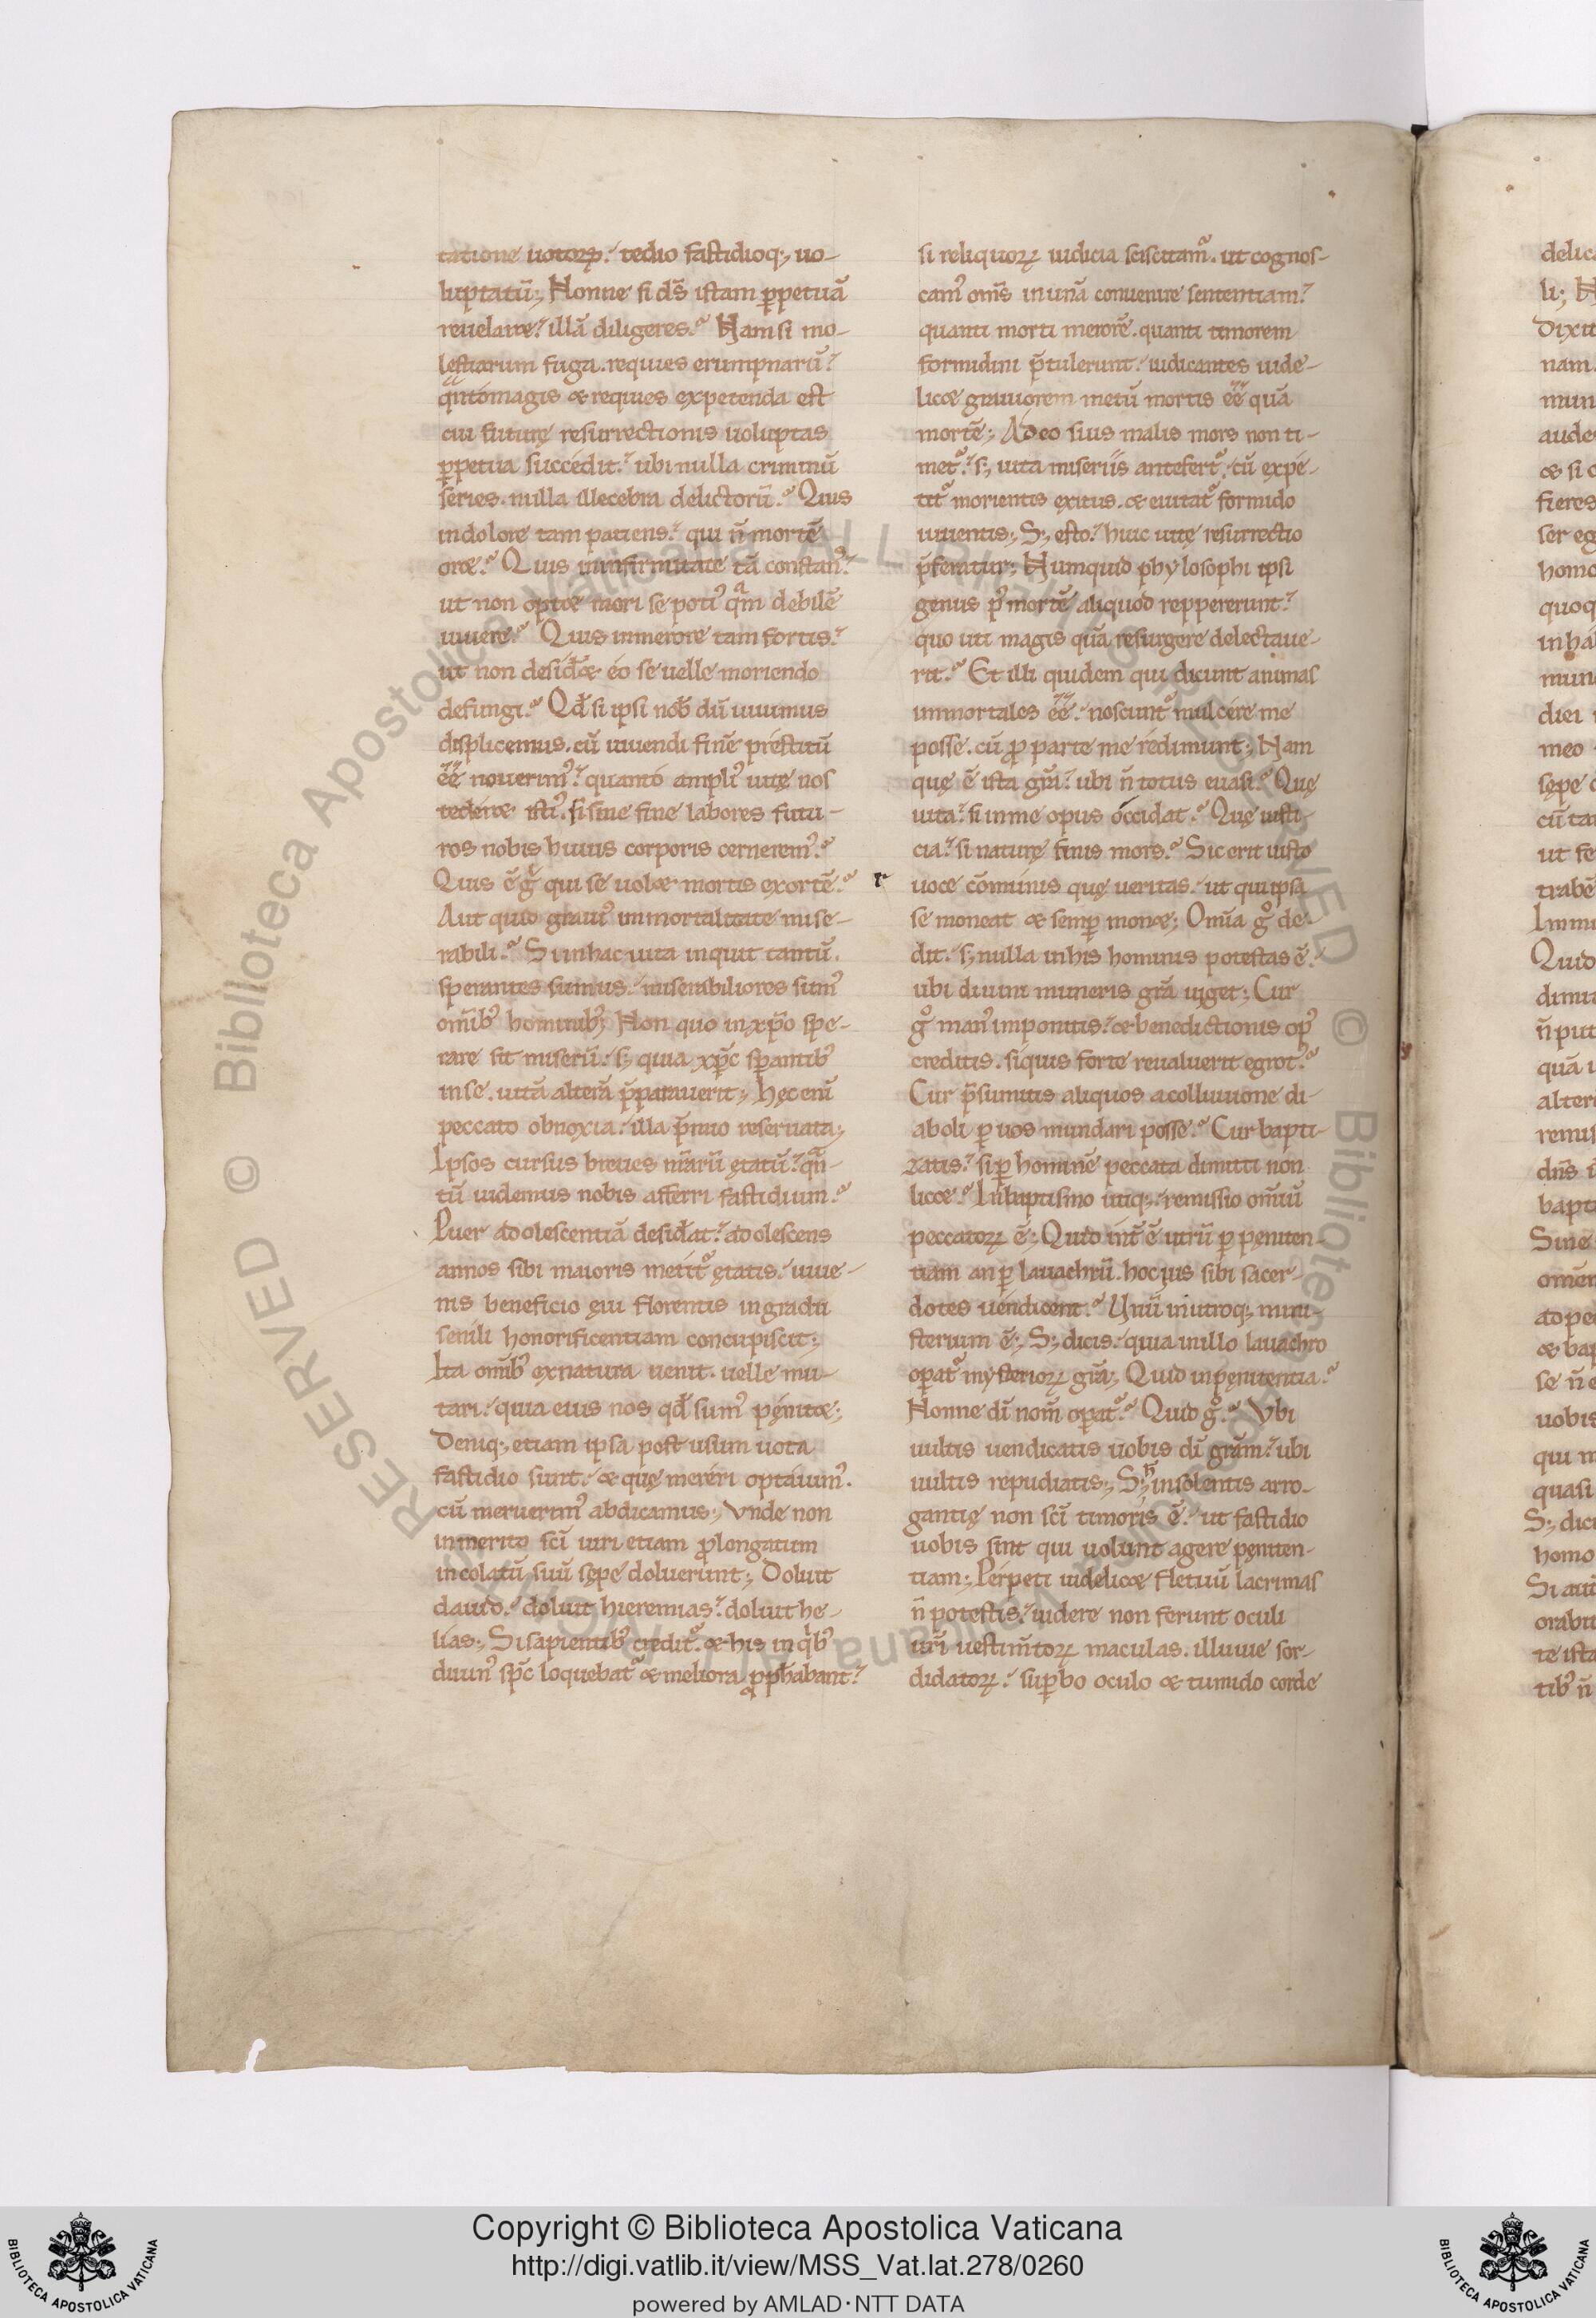 tatione uotoꝝ. tedio fastidioq; uo-
luptatū; Nonne si ds̄ istam ꝑpetuā
reuelare. illā diligeres. Nam si mo-
lestiarum fuga. requies erumpnarū.
q̄ntomagis & requies expetenda est
cui futurę resurrectionis uoluptas
ꝑpetua succedit. ubi nulla criminū
series. nulla illecebra delictorū. Quis
indolore tam patiens. qui n̄ mortē
oret. Quis ininfirmitate tā constans.
ut non optet mori se poti᾽ qᵃm debilē
uiuere. Quis inmerore tam fortis.
ut non desid̄et eo se uelle moriendo
defungi. Qd̄ si ipsi nob̄ dū uiuimus
displicemus. cū uiuendi finē prestitū
ēē nouerim᾽. quanto ampli᾽ uitę nos
tederet isti᾽. si sine fine labores futu-
ros nobis huius corporis cernerem᾽.
Quis ē gͥ qui se uolet mortis exortē.
Aut quid graui᾽ inmortalitate mise-
rabili. Si inhac uita inquit tantū.
sperantes sumus. miserabiliores sum᾽
omīb᾽ hominib᾽; Non quo in xp̄o spe-
rare sit miserū. s; quia xp̄c sꝑantib᾽
inse. uitā alterā p̄parauerit; Hęc enī
peccato obnoxia. illa p̄mio reseruata;
Ipsos cursus breues nr̄arū ętatū. qᵃn-
tū uidemus nobis afferri fastidium.
Puer adolescentiā desid̄at. adolescens
annos sibi maioris metit᷑ ętatis. iuue-
nis beneficio ęui florentis ingradu
senili honorificentiam concupiscit;
Ita omīb᾽ exnatura uenit. uelle mu-
tari. quia eius nos qd̄ sum᾽ pęnitet;
Deniq; etiam ipsa post usum uota
fastidio sunt. & quę mereri optauim᾽.
cū meruerim᾽ abdicamus; Vnde non
inmerito sc̄i uiri etiam ꝓlongatum
incolatū suū sępe doluerunt; Doluit
dauid. doluit hieremias. doluit he-
lias; Si sapientib᾽ credit᷑. & his inqͥb᾽
diuin᾽ sp̄c loquebat᷑ & meliora ꝓph̄abant.
si reliquoꝝ iudicia sciscitam᷑. ut cognos-
cam᾽ omīs inunā conuenire sententiam.
quanti morti merorē. quanti timorem
formidini p̄tulerunt. iudicantes uide-
licet grauiorem metū mortis ēē quā
mortē; Adeo suis malis mors non ti-
met᷑. s; uita miseriis antefert᷑. cū expe-
tit᷑ morientis exitus. & euitat᷑ formido
uiuentis; S; esto. huic uitę resurrectio
p̄feratur; Numquid phylosophi ipsi
genus p᾽ mortē aliquod reppererunt.
quo uti magis quā resurgere delectaue-
rit. Et illi quidem qui dicunt animas
inmortales ēē. noscunt᷑ mulcere me
posse. cū ꝓ parte me redimunt; Nam
quę ē ista gr̄a. ubi n̄ totus euasi. Quę
uita. si inme opus occidat. Quę iusti-
cia. si naturę finis mors. Sic erit iusto
uoce cōmunis quę ueritas. ut qui ipsa
se moneat & semꝑ monet; Omīa gͦ de-
dit. s; nulla inhis hominis potestas ē.
ubi diuini muneris gr̄a uiget; Cur
gͦ man᾽ imponitis. & benedictionis op᾽
creditis. siquis forte reualuerit egrot᾽.
Cur p̄sumitis aliquos acolluuione di-
aboli ꝑ uos mundari posse. Cur bapti-
zatis. si ꝑ hominē peccata dimitti non
licet. Inbaptismo utiq; remissio omīū
peccatoꝝ ē; Quid int̄ ē utrū ꝑ pęniten-
tiam an ꝑ lauachrū. hoc ius sibi sacer-
dotes uendicent. Unū inutroq; mini-
sterium ē; S; dicis. quia inillo lauachro
oꝑat᷑ mysterioꝝ gr̄a; Quid inpęnitentia.
Nonne dī nom̄ oꝑat᷑. Quid gͦ. Vbi
uultis uendicatis uobis dī gr̄am. ubi
uultis repudiatis; S; h̄ insolentis arro-
gantię non sc̄i timoris ē. ut fastidio
uobis sint qui uolunt agere pęniten-
tiam; Perpeti uidelicet fletuū lacrimas
n̄ potestis. uidere non ferunt oculi
uri uestim̄toꝝ maculas. illuuie sor-
didatoꝝ. suꝑbo oculo & tumido corde
Copyright © Biblioteca Apostolica Vaticana
http://digi.vatlib.it/view/MSS_Vat.lat.278/0260
powered by AMLAD·NTT DATA